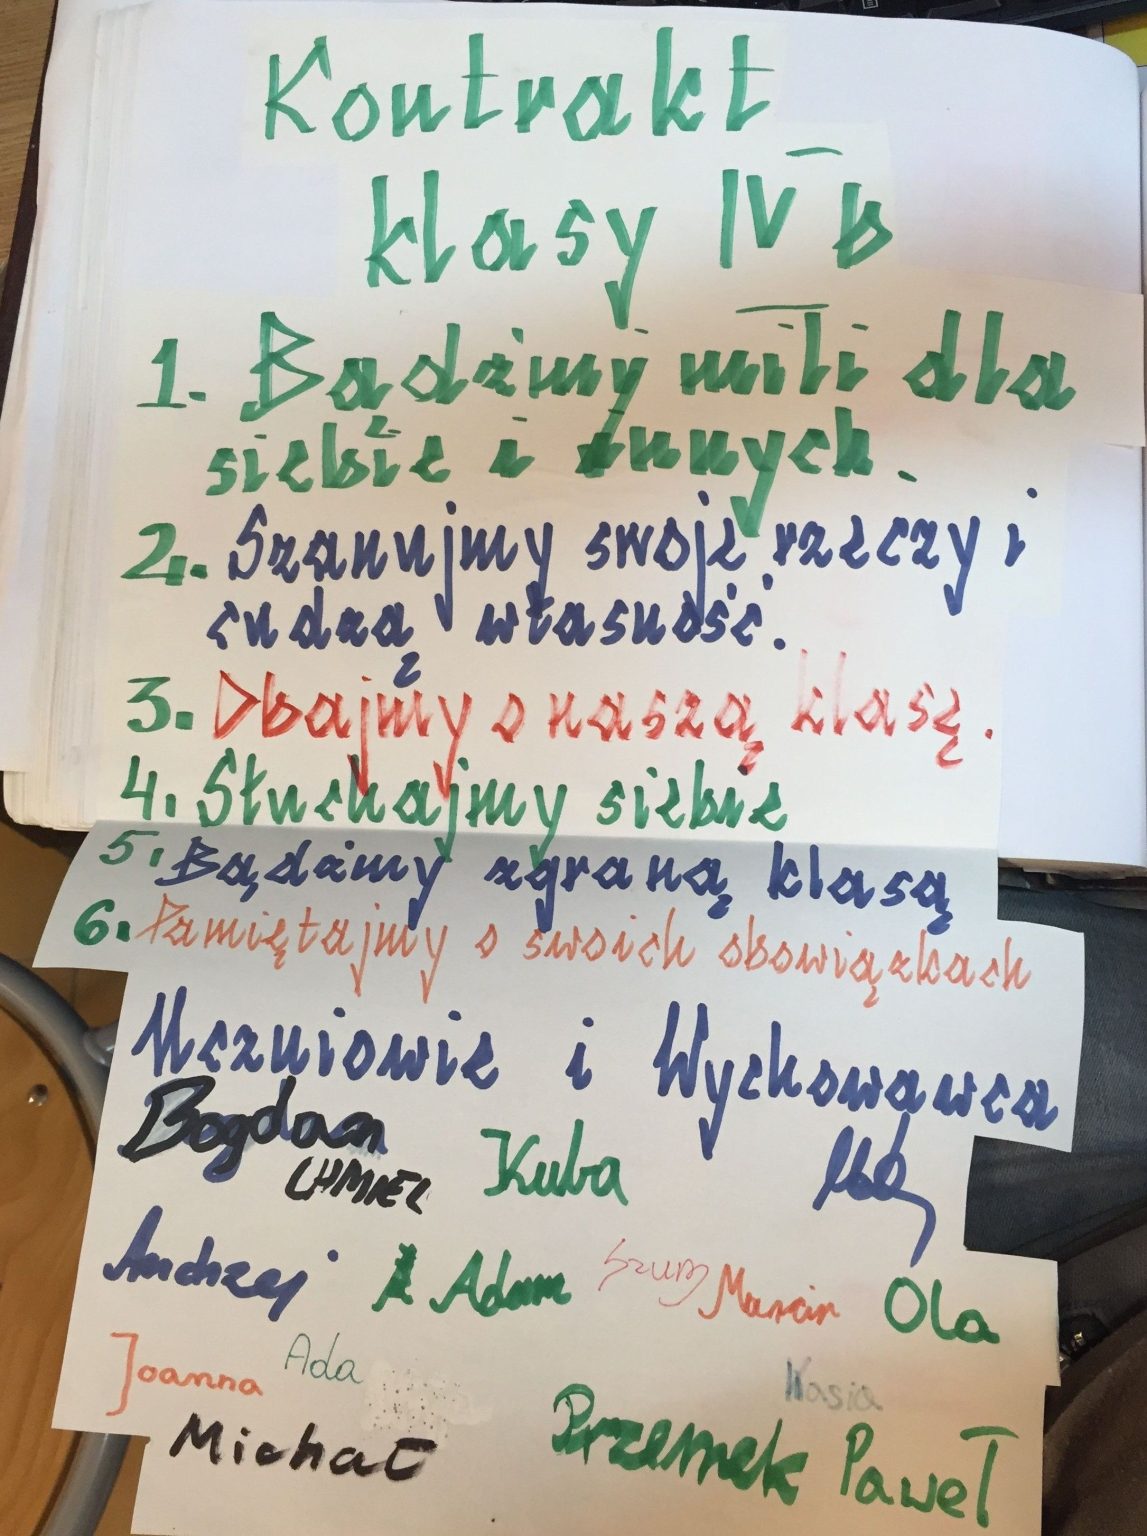 Kontrakt
klasy IV b
1. Bądźmy mili dla
siebie i innych.
2. Szanujmy swoje rzeczy i
cudzą własność.
3. Dbajmy o naszą klasę.
4. Słuchajmy siebie
5. Bądźmy zgraną klasą
6. Pamiętajmy o swoich obowiązkach
Uczniowie i Wychowawca
Bogdan Kuba
CHMIEL
Andrzej Adam Marcin Ola
Joanna Ada Kasia
Michał Przemek Paweł